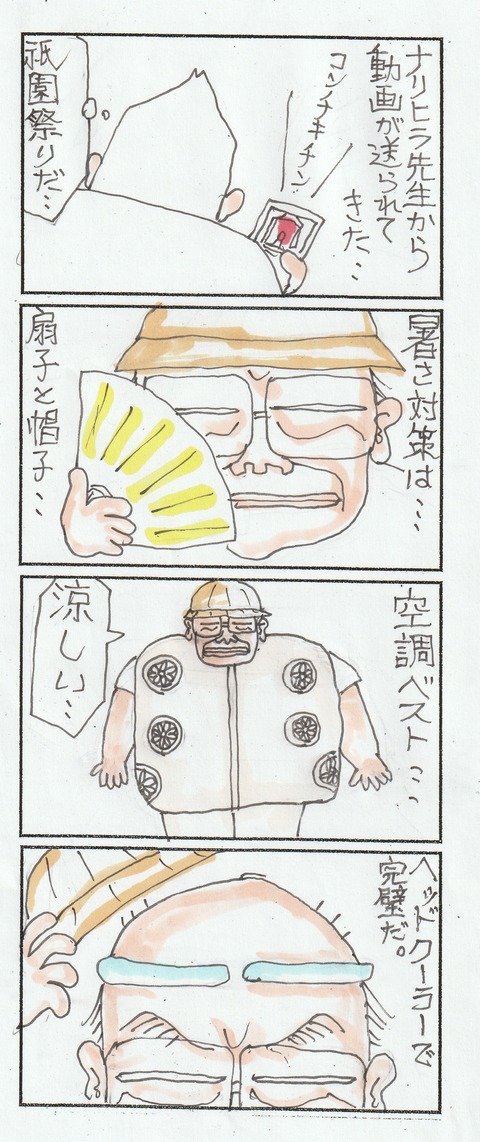 ナリヒラ先生から
動画が送られて
きた…
コンチキチン
祇園祭りだ…
暑さ対策は…
扇子と帽子…
空調ベスト…
涼しい…
ヘッドクーラーで
完璧だ。